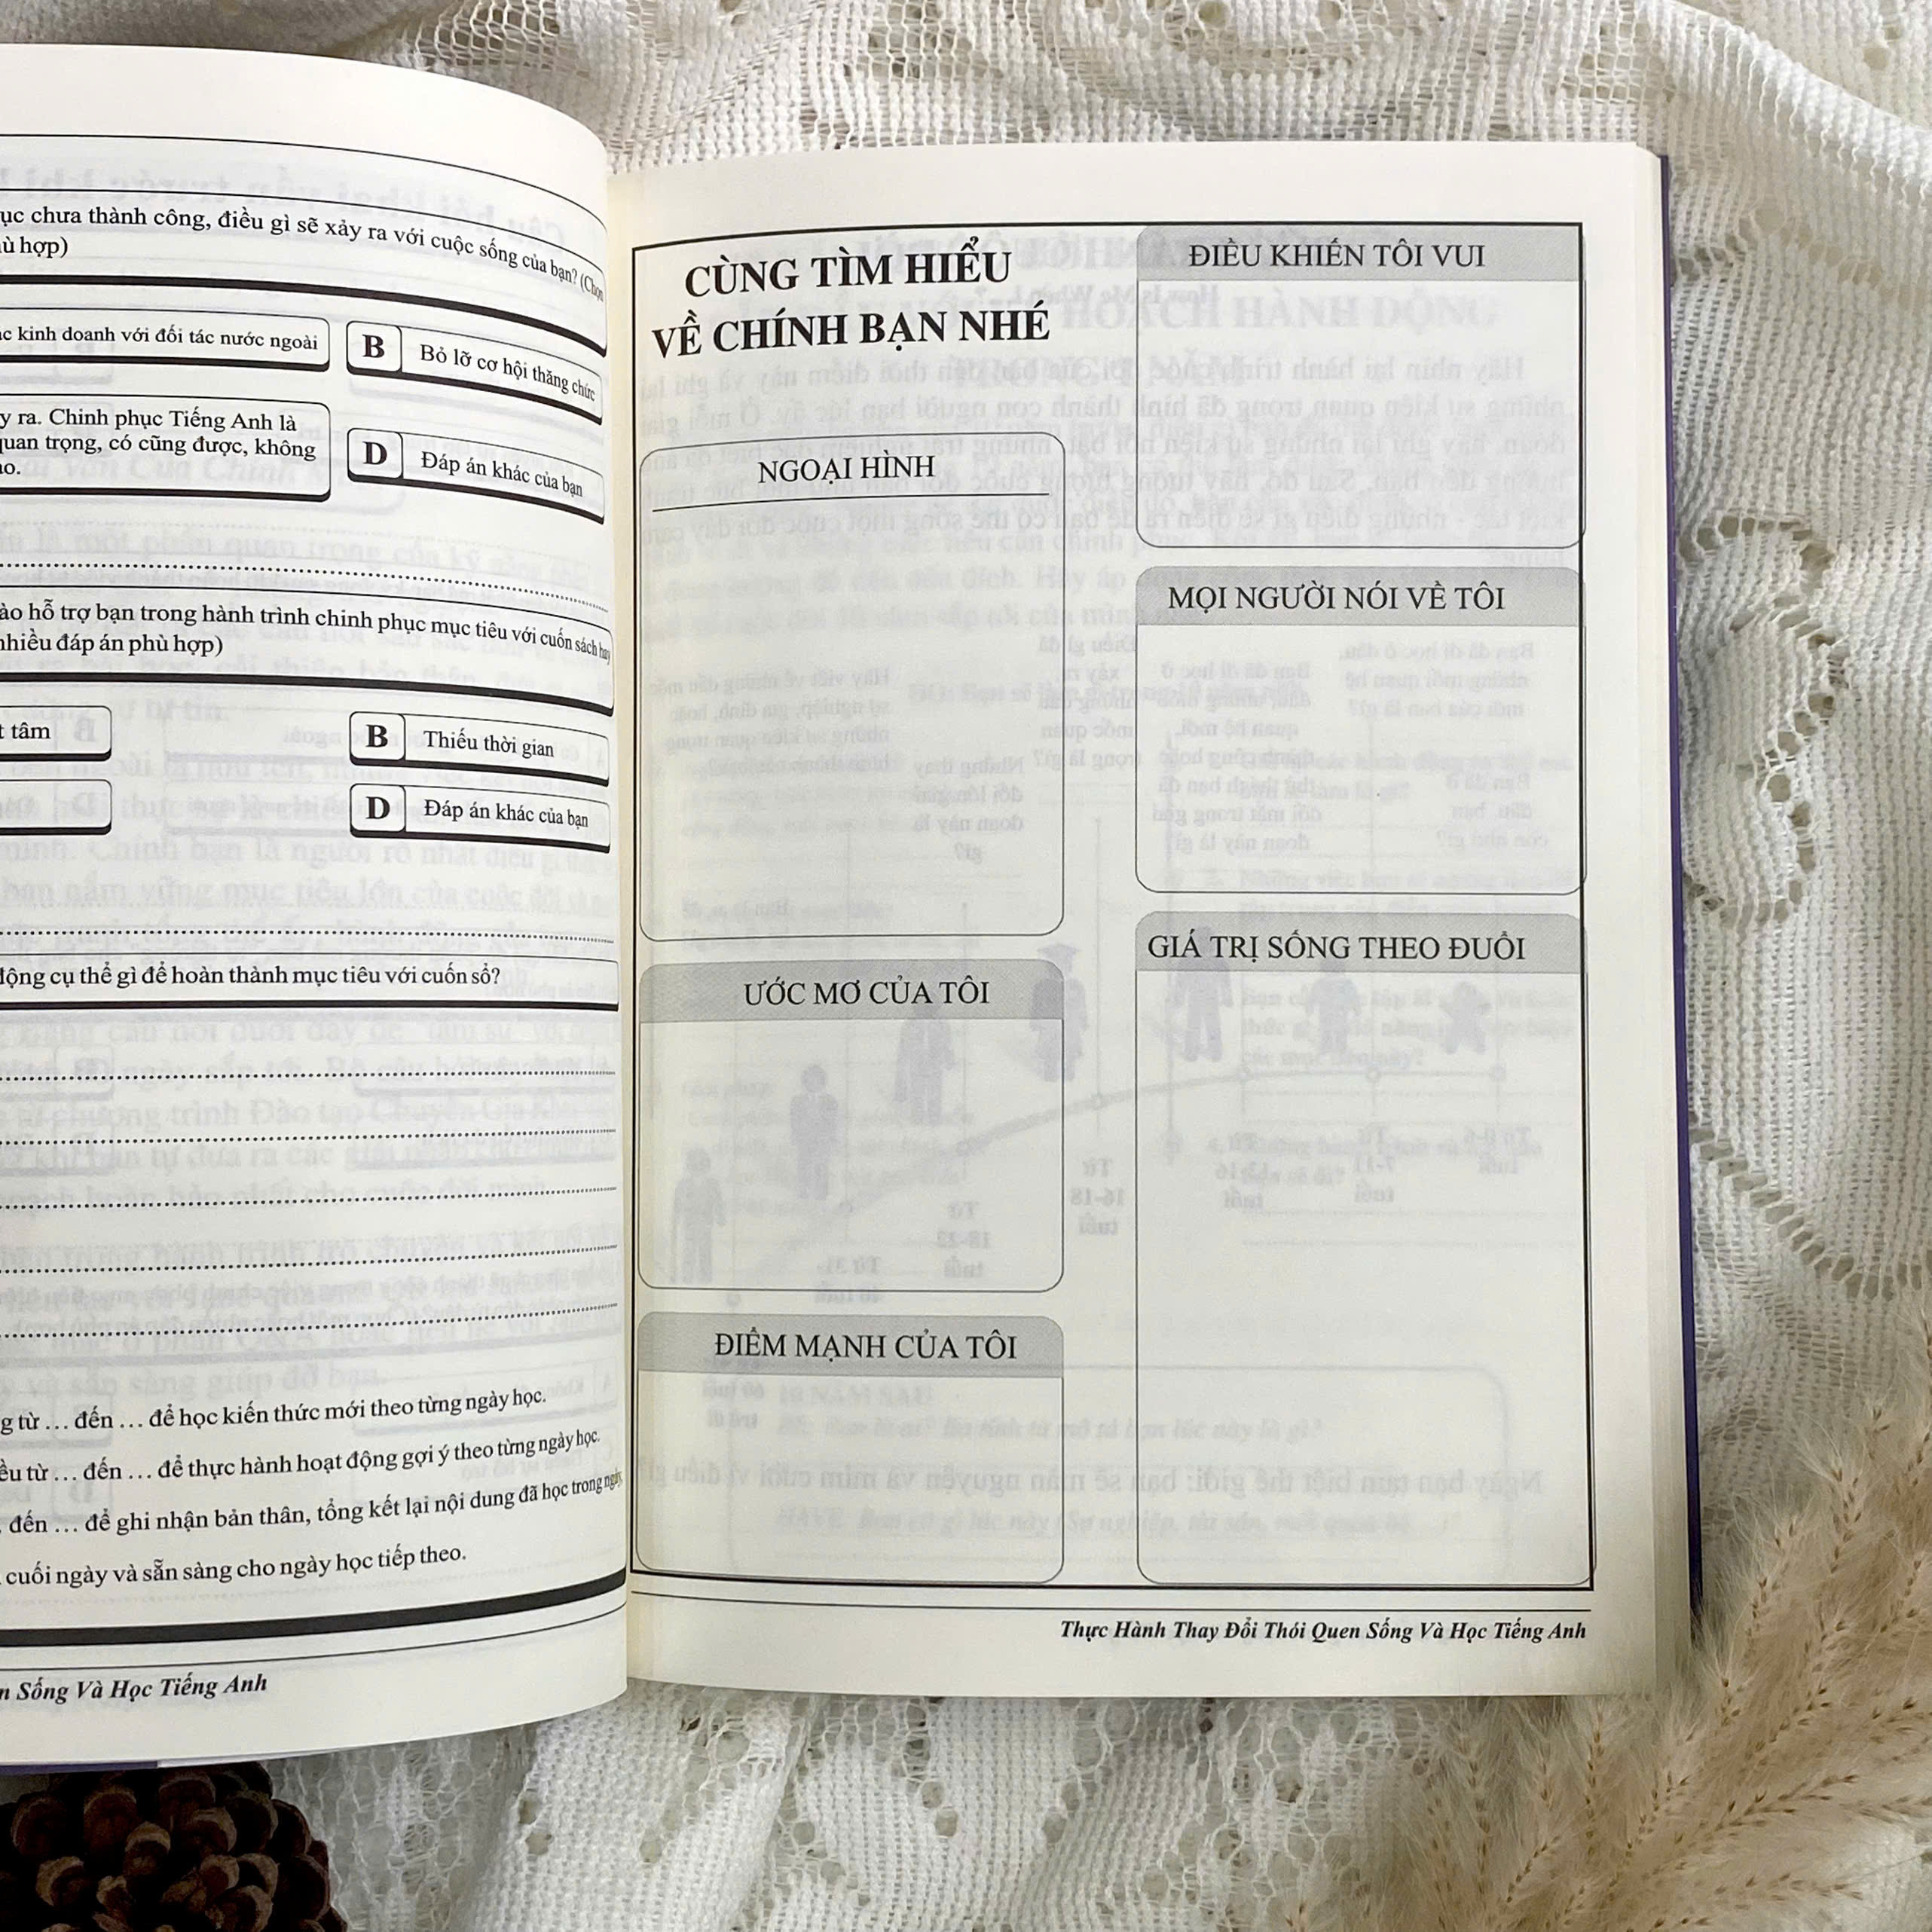 ục chưa thành công, điều gì sẽ xảy ra với cuộc sống của bạn? (Chọn
hù hợp)
kinh doanh với đối tác nước ngoài
B Bỏ lỡ cơ hội thăng chức
y ra. Chinh phục Tiếng Anh là
quan trọng, có cũng được, không
D Đáp án khác của bạn
ào hỗ trợ bạn trong hành trình chinh phục mục tiêu với cuốn sách hay
nhiều đáp án phù hợp)
t tâm
B Thiếu thời gian
D Đáp án khác của bạn
động cụ thể gì để hoàn thành mục tiêu với cuốn sổ?
g từ … đến … để học kiến thức mới theo từng ngày học.
ều từ … đến … để thực hành hoạt động gợi ý theo từng ngày học.
đến … để ghi nhận bản thân, tổng kết lại nội dung đã học trong ngày
cuối ngày và sẵn sàng cho ngày học tiếp theo.
n Sống Và Học Tiếng Anh
CÙNG TÌM HIỂU
VỀ CHÍNH BẠN NHÉ
NGOẠI HÌNH
ƯỚC MƠ CỦA TÔI
ĐIỂM MẠNH CỦA TÔI
ĐIỀU KHIẾN TÔI VUI
MỌI NGƯỜI NÓI VỀ TÔI
GIÁ TRỊ SỐNG THEO ĐUỔI
Thực Hành Thay Đổi Thói Quen Sống Và Học Tiếng Anh